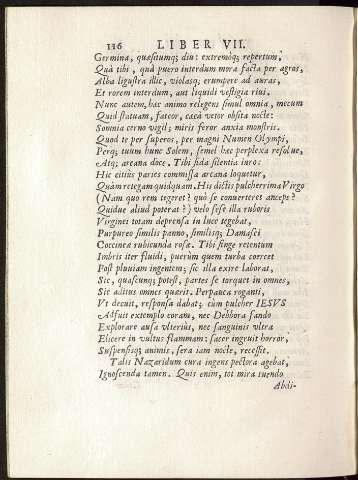 116 LIBER VII.
Germina, quæsitumq; diu: extremóq; repertum,
Quà tibi, quà puero interdum mora facta per agros,
Alba ligustra illic, violasq; erumpere ad auras,
Et rorem interdum, aut liquidi vestigia rivi.
Nunc autem, hac animo relegens simul omnia, mecum
Quid statuam, fateor, cæcâ vetor obsita nocte:
Somnia cerno vigil; miris feror anxia monstris.
Quod te per superos, per magni Numen Olympi,
Perq; tuum hunc Solem, semel hæc perplexa resolue,
Atq; arcana doce. Tibi fida silentia iuro:
Hic citiùs partes commissa arcana loquetur,
Quàm retegam quidquam. His dictis pulcherrima Virgo
(Nam quo rem tegeret? quò se conuerteret anceps?
Quidue aliud poterat?) velo sese illa ruboris
Virginei totam deprensa in luce tegebat,
Purpureo similis panno, similisq; Damasci
Coccinea rubicunda rosæ. Tibi singe retentum
Imbris iter fluidi, puerûm quem turba coercet
Post pluuiam ingentem; sic illa exire laborat,
Sic, quàcunq; potest, partes se torquet in omnes,
Sic aditus omnes quærit. Perpauca roganti,
Vt decuit, responsa dabat; cùm pulcher IESVS
Adfuit extemplo coram, nec Debbora fando
Explorare ausa vlterius, nec sanguinis vltra
Elicere in vultus flammam: sacer ingruit horror,
Suspensisq; animis, sera iam nocte, recessit.
Talis Nazaridum cura ingens pectora agebat,
Ignoscenda tamen. Quis enim, tot mira tuendo
Abdi-